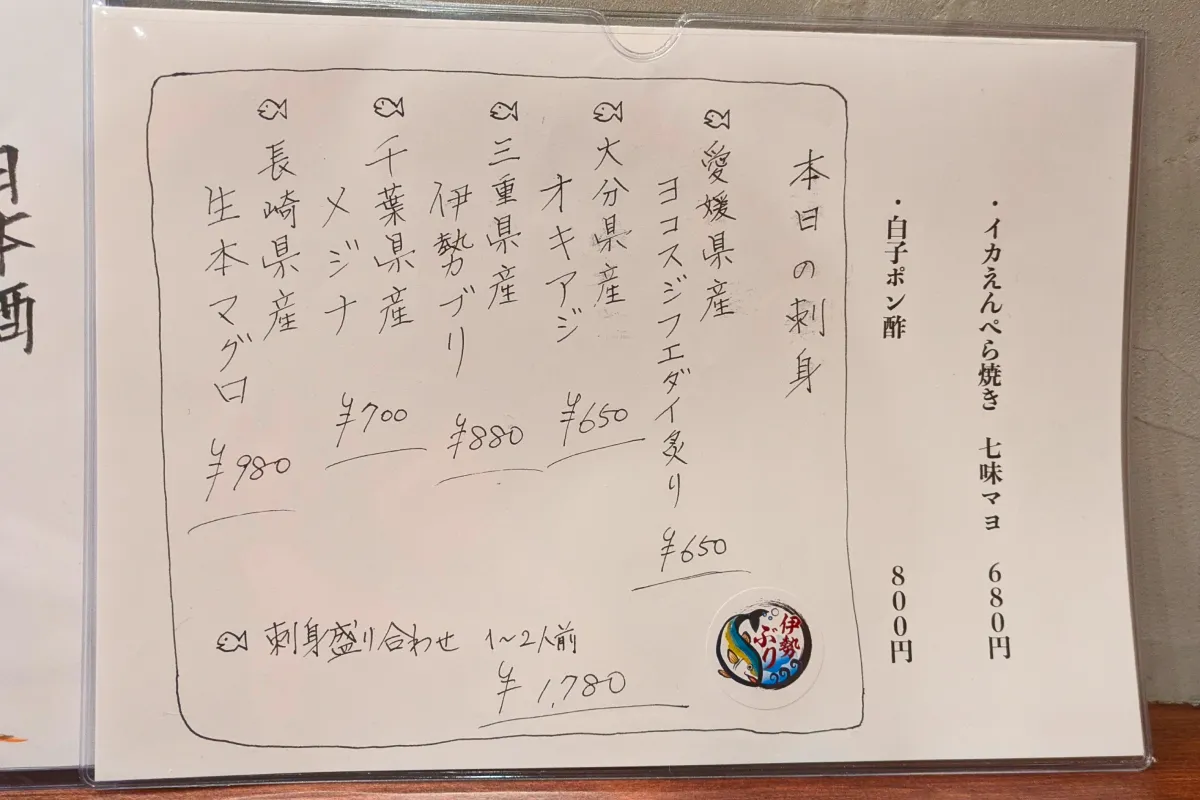 ・イカえんぺら焼き 七味マヨ 680円
・白子ポン酢 800円
本日の刺身
愛媛県産
ヨコスジフエダイ炙り ¥650
大分県産
オキアジ ¥650
三重県産
伊勢ブリ ¥880
千葉県産
メジナ ¥700
長崎県産
生本マグロ ¥980
刺身盛り合わせ 1~2人前
¥1,780
伊勢
ぶり
日本酒